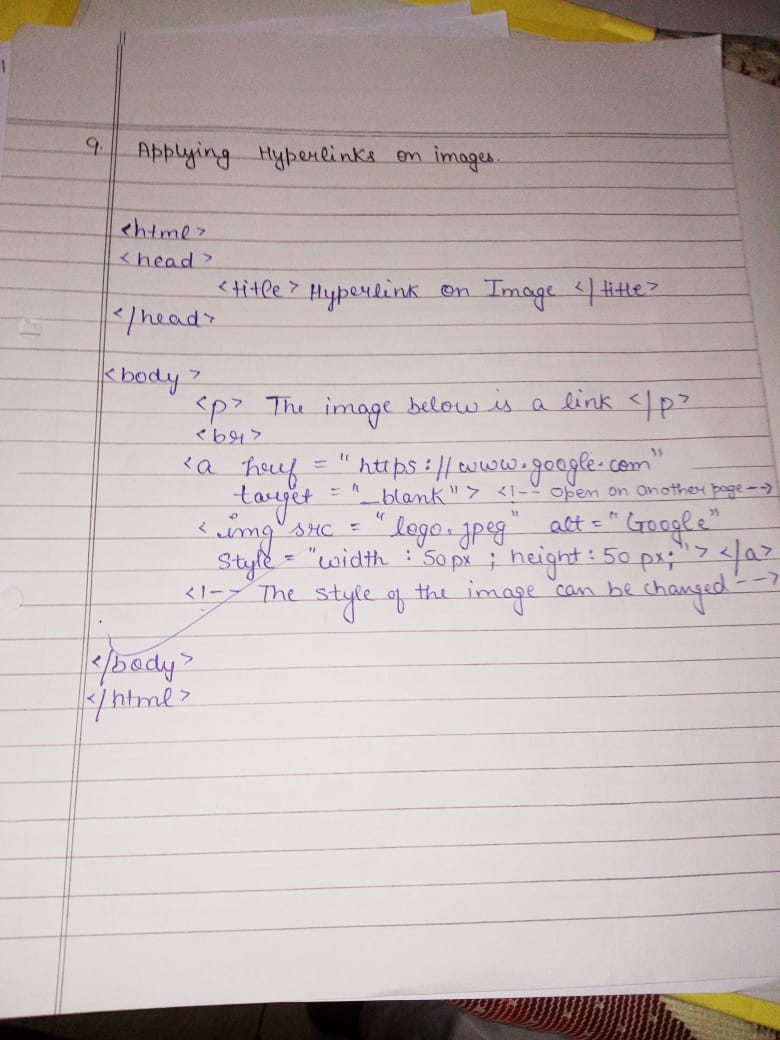 9. Applying Hyperlinks on images.
<html>
<head>
<title> Hyperlink on Image </title>
</head>
<body>
<p> The image below is a link </p>
<br>
<a href = "https://www.google.com"
target = "_blank"> <!-- open on another page-->
<img src = "logo.jpeg" alt = "Google"
Style = "width : 50px ; height : 50 px;"> </a>
<!-- The style of the image can be changed -->
</body>
</html>